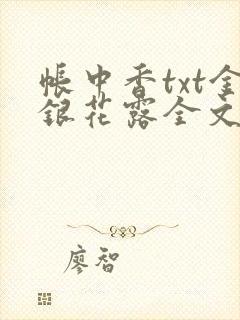 帐中香txt金
银花露全文
廖智